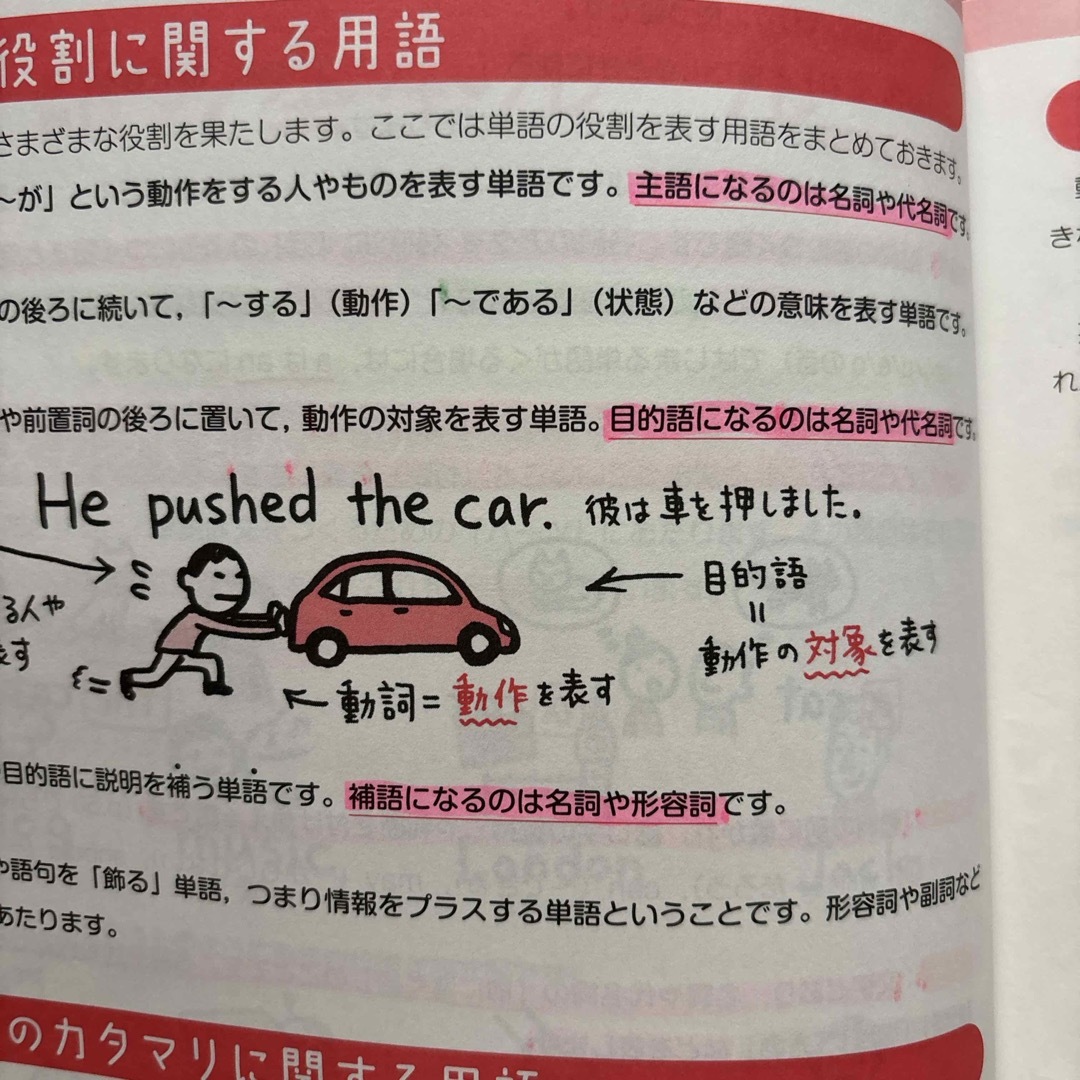 役割に関する用語
さまざまな役割を果たします。ここでは単語の役割を表す用語をまとめておきます。
〜が」という動作をする人やものを表す単語です。主語になるのは名詞や代名詞です。
の後ろに続いて,「〜する」（動作）「〜である」（状態）などの意味を表す単語です。
や前置詞の後ろに置いて, 動作の対象を表す単語。目的語になるのは名詞や代名詞です。
He pushed the car. 彼は車を押しました。
目的語
=
動作の対象を表す
る人や
表す
動詞=動作を表す
目的語に説明を補う単語です。補語になるのは名詞や形容詞です。
や語句を「飾る」単語, つまり情報をプラスする単語ということです。形容詞や副詞など
あたります。
のカタマリに関する用語
き
れ